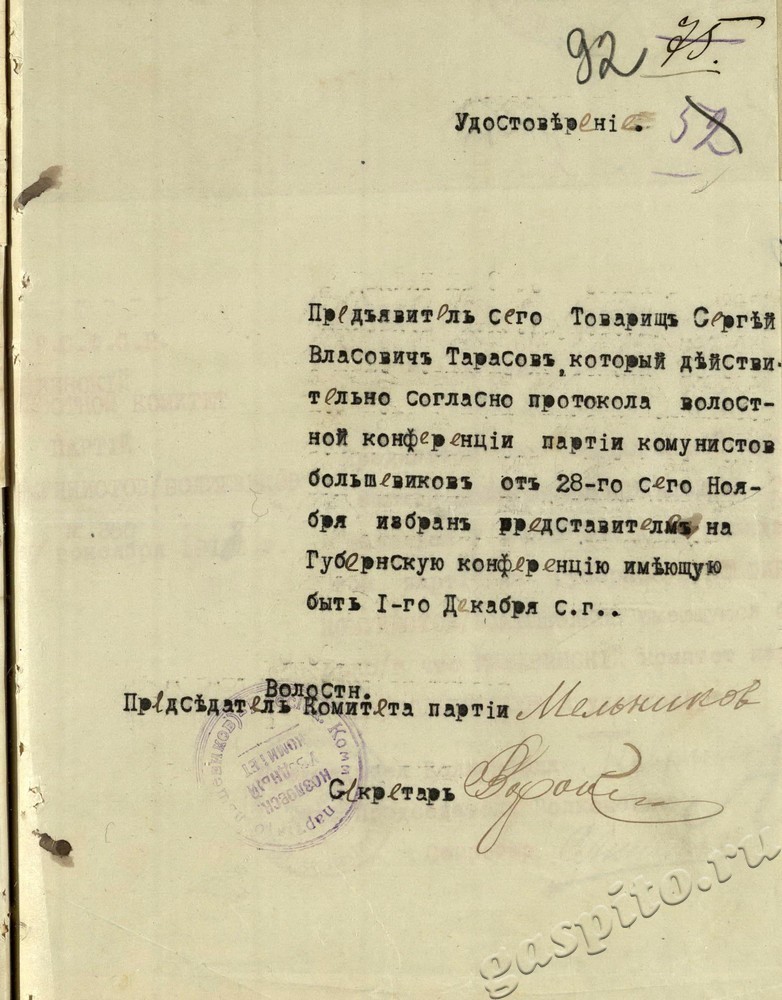 92 75.
Удостовѣреніе. 52
Предъявитель сего Товарищъ Сергѣй
Власовичъ Тарасовъ, который дѣйстви-
тельно согласно протокола волост-
ной конференціи партіи комунистов
большевиковъ отъ 28-го сего Ноя-
бря избранъ представителмъ на
Губернскую конференцію имѣющую
быть I-го Декабря с.г..
Волостн.
Предсѣдатель Комитета партіи Мельников
Секретарь
УѢЗДНЫЙ
КОМИТЕТ
Комм
парт
gaspito.ru